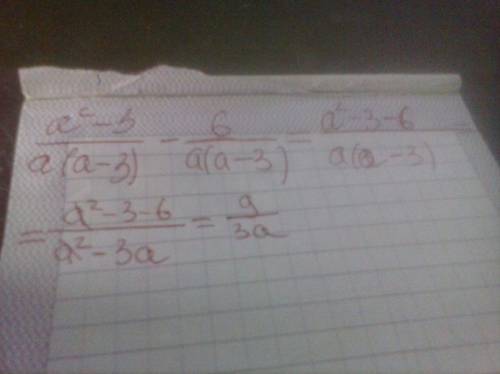 (a² - 3)/(a(a - 3)) - 6/(a(a - 3)) = (a² - 3 - 6)/(a(a - 3))
= (a² - 3 - 6)/(a² - 3a) = 9/(3a)